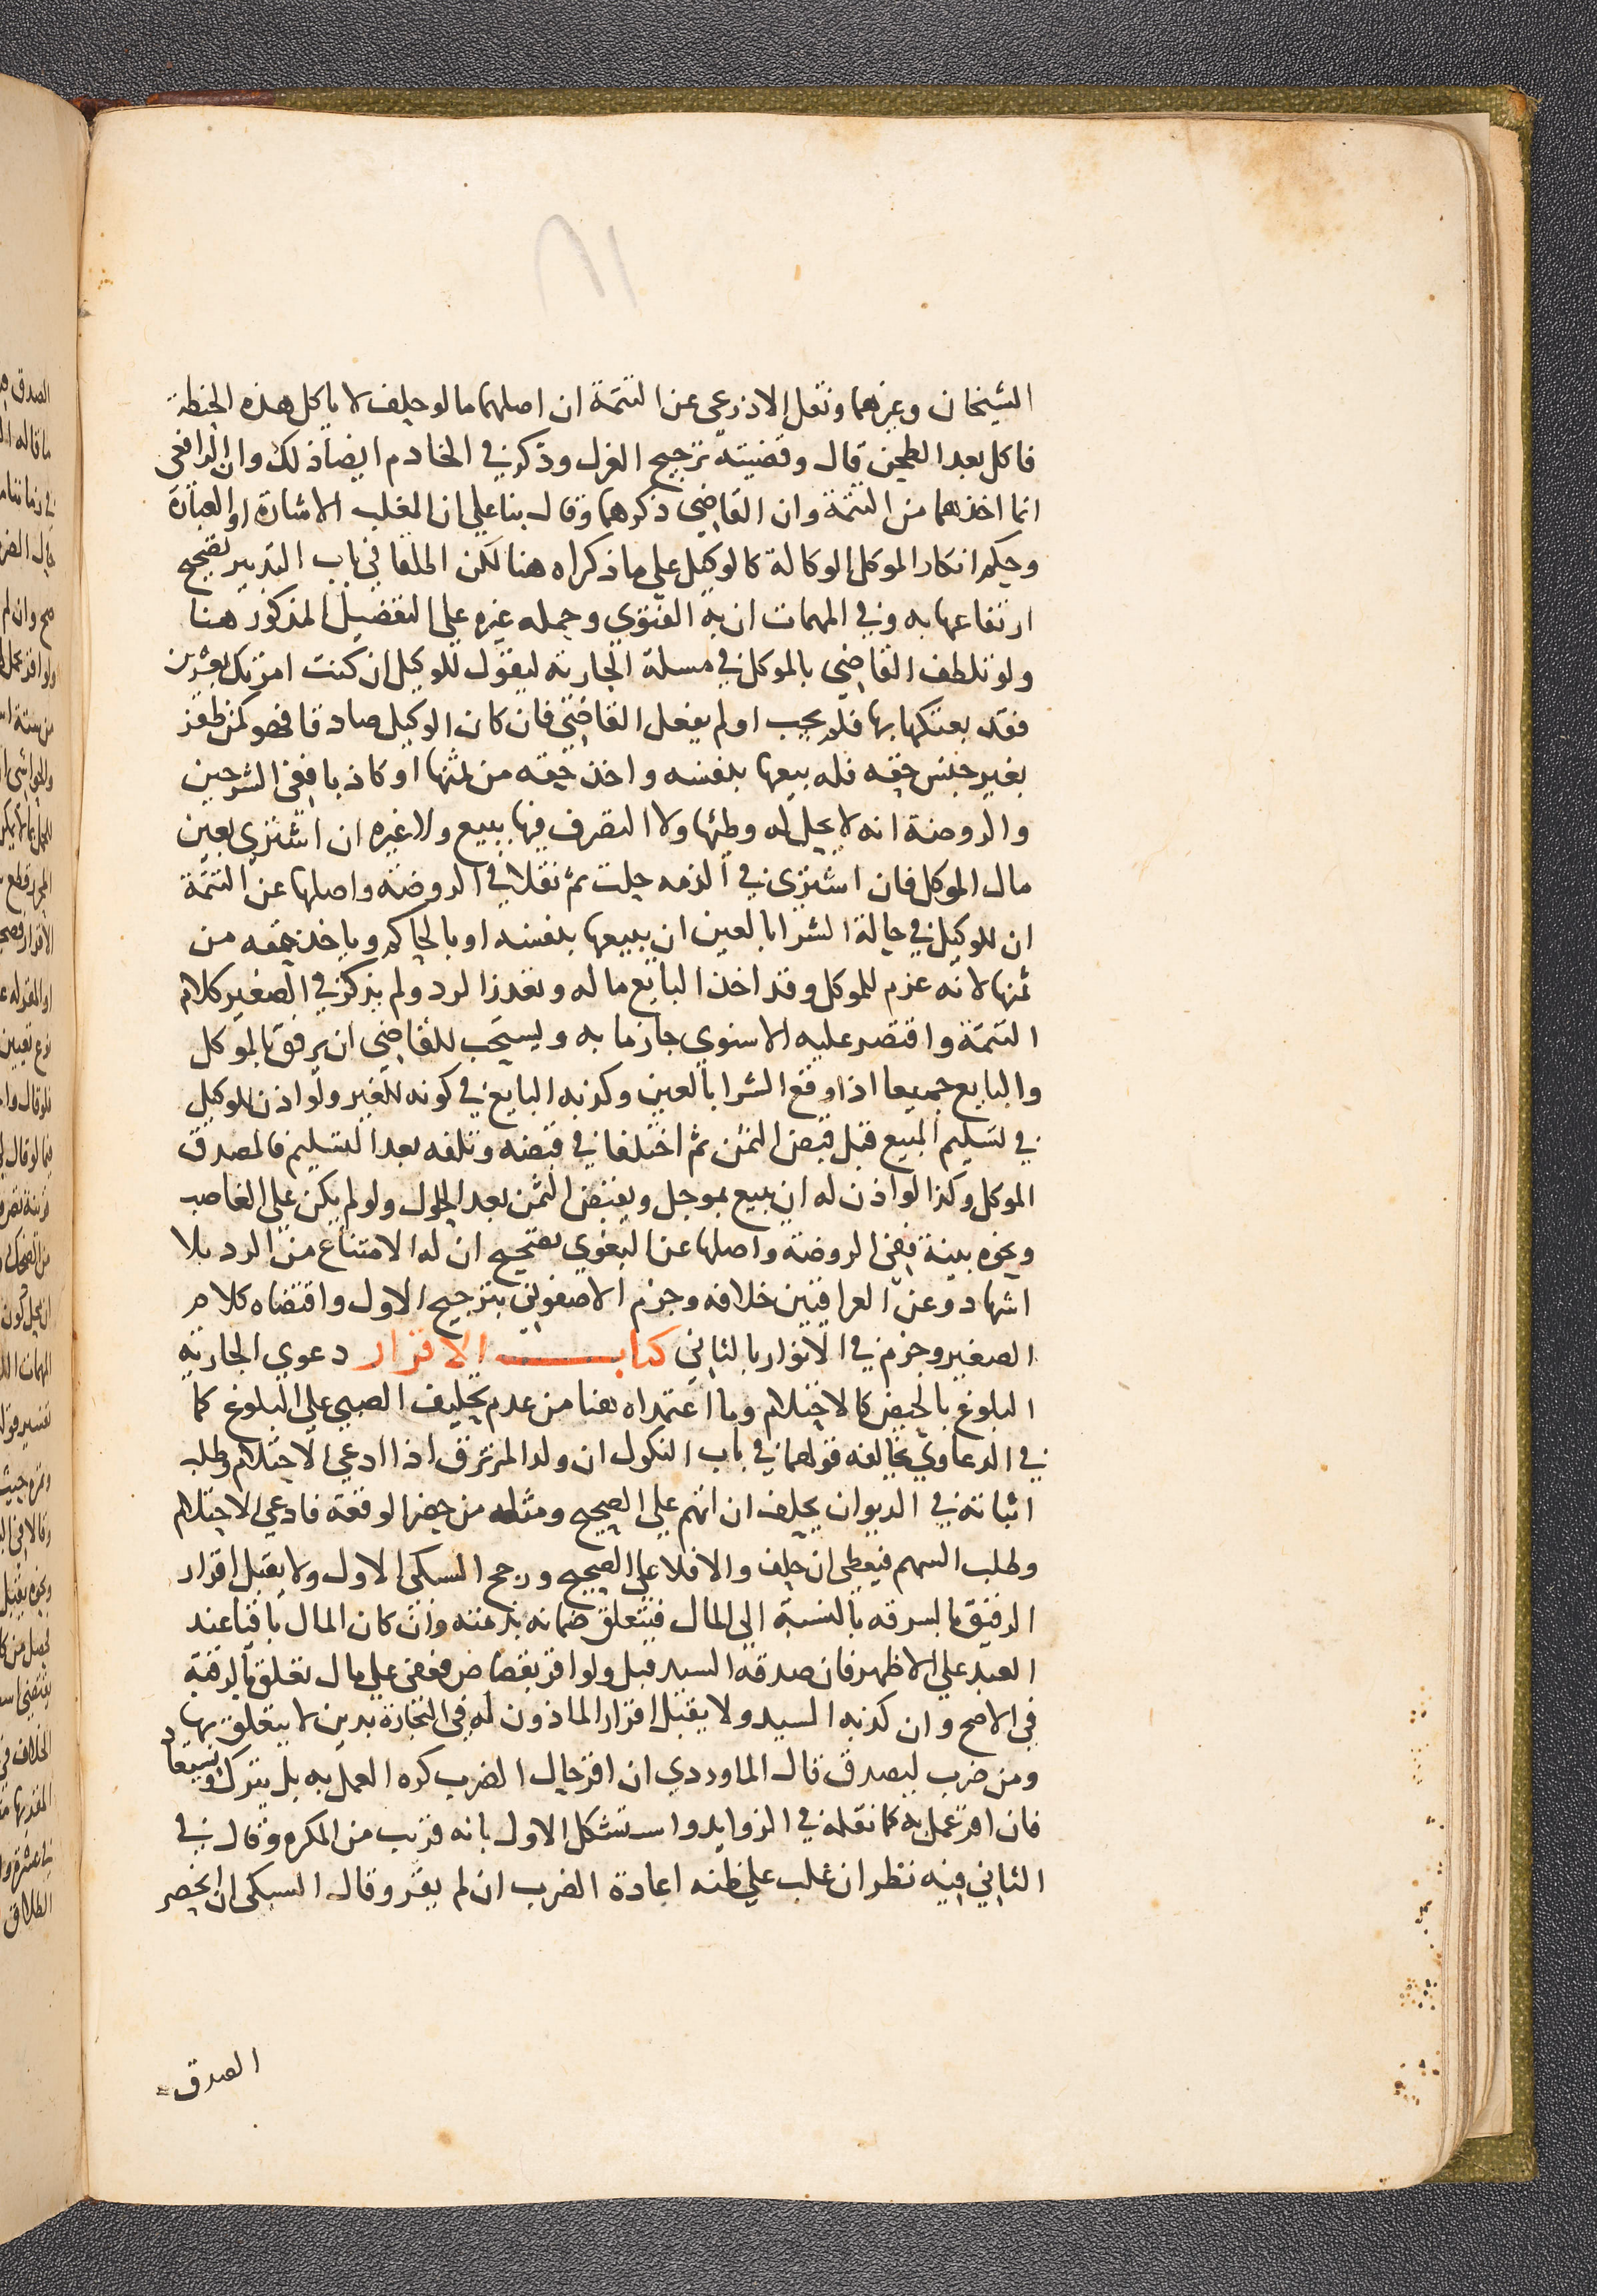 ٨١
الشيخان وغيرهما ونقل الاذرعي عن التتمة ان اصلهما ما لو حلف لا ياكل هذه الحنطة
فاكل بعد الطحن قال وقضيته ترجيح العزل وذكر في الخادم ايضا ذلك وان الرافعي
انما اخذهما من التتمة وان القاضي ذكرهما وقال بنا علي ان المغلب الاشارة او العبارة
وحكم انكار الموكل الوكالة كالوكيل علي ما ذكراه هنا لكن اطلقا في باب التدبير تصحيح
ارتفاعها به وفي المهمات ان به الفتوي وحمله غيره علي التفصيل المذكور هنا
ولو تلطف القاضي بالموكل في مسلة الجارية ليقول للوكيل ان كنت امرتك بعشرين
فقد بعتكها بها فلم يجب او لم يفعل القاضي فان كان الوكيل صادقا فهو كمن ظفر
بغير جنس حقه فله بيعها بنفسه واخذ حقه من ثمنها او كاذبا ففي الشرحين
والروضة انه لا يحل له وطئها ولا التصرف فيها ببيع ولا غيره ان اشتري بعين
مال الموكل فان اشتري في الذمه حلت ثم نقلا في الروضة واصلها عن التتمة
ان للوكيل في حالة الشرا بالعين ان يبيعها بنفسه او بالحاكم وياخذ حقه من
ثمنها لانه غرم للموكل وقد اخذ البايع ماله وتعذر الرد ولم يذكر في الصغير كلام
التتمة واقتصر عليه الاسنوي جازما به ويستحب للقاضي ان يرفق بالموكل
والبايع جميعا اذا وقع الشرا بالعين وكذبه البايع في كونه للغير ولو اذن للوكيل
في تسليم المبيع قبل قبض الثمن ثم اختلفا في قبضه وتلفه بعد التسليم فالمصدق
الموكل وكذا لو اذن له ان يبيع بموجل ويقبض الثمن بعد الحلول ولو لم يكن علي الغاصب
ونحوه بينة ففي الروضة واصلها عن البغوي تصحيح ان له الامتناع من الرد بلا
اشهاد وعن العراقيين خلافه وجزم الاصفوني بترجيح الاول واقتضاه كلام
الصغير وجزم في الانوار بالثاني كتاب الاقرار دعوي الجارية
البلوغ بالحيض كالاحتلام وما اعتمداه هنا من عدم تحليف الصبي علي البلوغ كما
في الدعاوي يخالفه قولهما في باب النكول ان ولد المرتزق اذا ادعي الاحتلام وطلب
اثباته في الديوان يحلف ان اتهم علي الصحيح ومثله من حضر الوقعة فادعي الاحتلام
وطلب السهم فيعطي ان حلف والا فلا علي الصحيح ورجح السبكي الاول ولا يقبل اقرار
الرقيق بالسرقه بالنسبة الي المال فيتعلق ضمانه بذمته وان كان المال باقيا عند
العبد علي الاظهر فان صدقه السيد قبل ولو اقر بقصاص فعفي علي مال تعلق بالرقبة
في الاصح وان كذبه السيد ولا يقبل اقرار الماذون له في التجارة بدين لا يتعلق بها
ومن ضرب ليصدق قال الماوردي ان اقر حال الضرب كره العمل به بل يترك ويستعاد
فان اقر عمل به كما نقله في الزوايد واستشكل الاول بانه قريب من المكره وقال في
الثاني فيه نظر ان غلب علي ظنه اعادة الضرب ان لم يقر وقال السبكي ان انحصر
الصدق